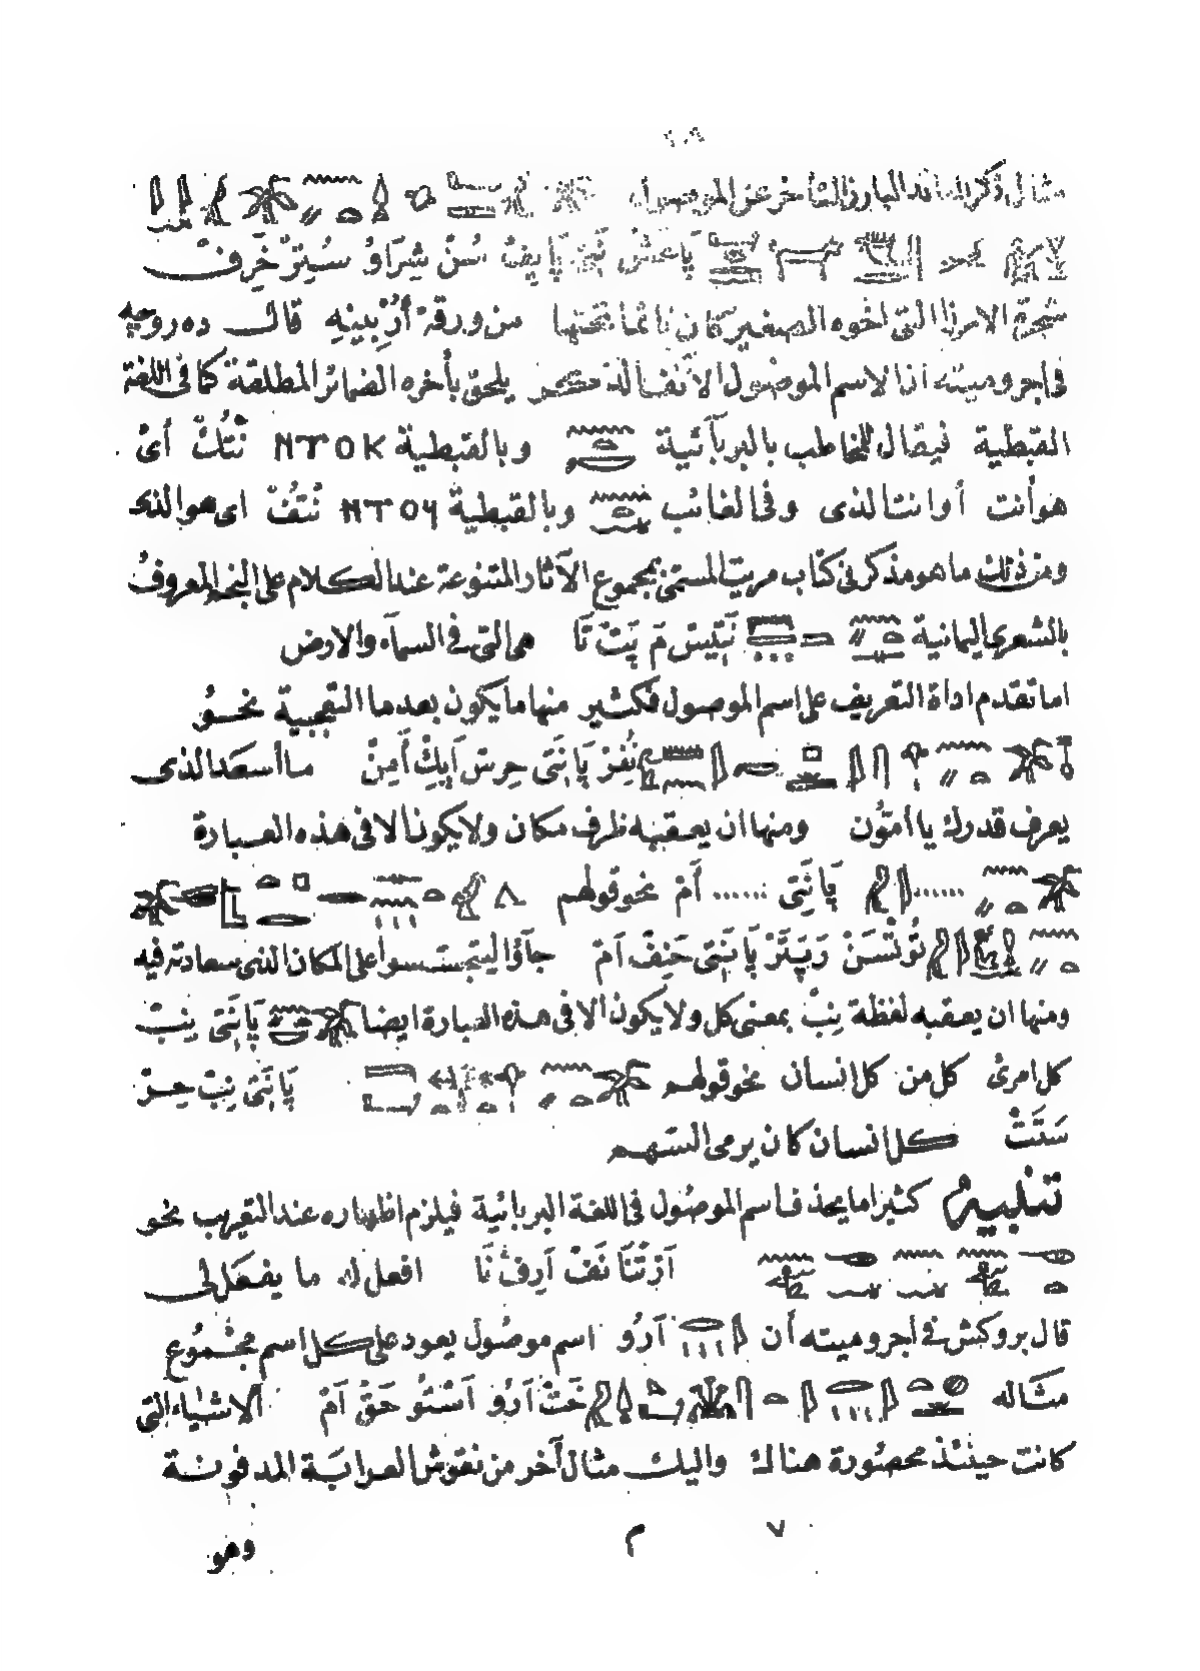 مثال ذكر العائد البارز المتأخر عن الموصول
پَاعَشْ نْتِ پَايِفْ سُنْ شِرَاوُ سُتِرْ خَرِفْ
شجرة الامرنا التى اخوه الصغير كان نائما تحتها من ورقة أُرْبينِهِ قال ده روجيه
فى اجروميته انا الاسم الموصول الآنف الذكر يلحق بأخره الضمائر المطلقة كما فى اللغة
القبطية فيقال للمخاطب بالبربائية وبالقبطية ⲚⲦⲞⲔ نْتُكْ أى
هو أنت أو انت الذى وفى الغائب وبالقبطية ⲚⲦⲞϤ نْتُفْ اى هو الذى
ومن ذلك ما هو مذكر فى كتاب مريت المسمى بمجموع الآثار المتنوعة عند الكلام على النجم المعروف
بالشعرى اليمانية نْتِيسْ مَ پِتْ تَا هى التى فى السمآء والارض
اما تقدم اداة التعريف على اسم الموصول فكثير منها ما يكون بعد ما التعجبية نحو
نُفِرْ پَانْتِى حِرسْ اَبِكْ أَمِنْ ما أسعد الذى
يعرف قدرك يا أمُّون ومنها ان يعقبه ظرف مكان ولا يكون الا فى هذه العبارة
پَانْتِى ...... أَمْ نحو قولهم
تُونْسَنْ رَپِتَرْ پَانْتِى حَنِفْ اَمْ جآؤا ليتجسسوا على المكان الذى سعادته فيه
ومنها ان يعقبه لفظة نِبْ بمعنى كل ولا يكون الا فى هذه العبارة ايضا پَانْتِى نِبْ
كل امرئ كل من كل انسان نحو قولهم پَانْتِى نِبْ حِرْ
سَتَتْ كل انسان كان يرمى السهم
تنبيه كثيرا ما يحذف اسم الموصول فى اللغة البربائية فيلزم اظهاره عند التعريب نحو
اَرْتُنَا نَفْ اَرِفْ نَا افعل له ما يفعل لى
قال بروكش فى أجروميته أن اَرُو اسم موصول يعود على كل اسم مجموع
مثاله خَتْ اَرُو اَسْتُو حَقْ اَمْ الاشياء التى
كانت حينئذ محصورة هناك واليك مثال آخر من نقوش العرابة المدفونة
٧ م وهو